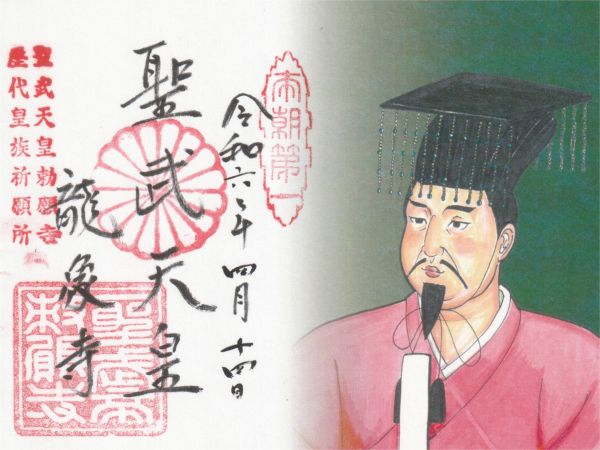 本朝第一
令和六年四月十四日
聖武天皇
龍象寺
聖武天皇勅願寺
歴代皇族祈願所